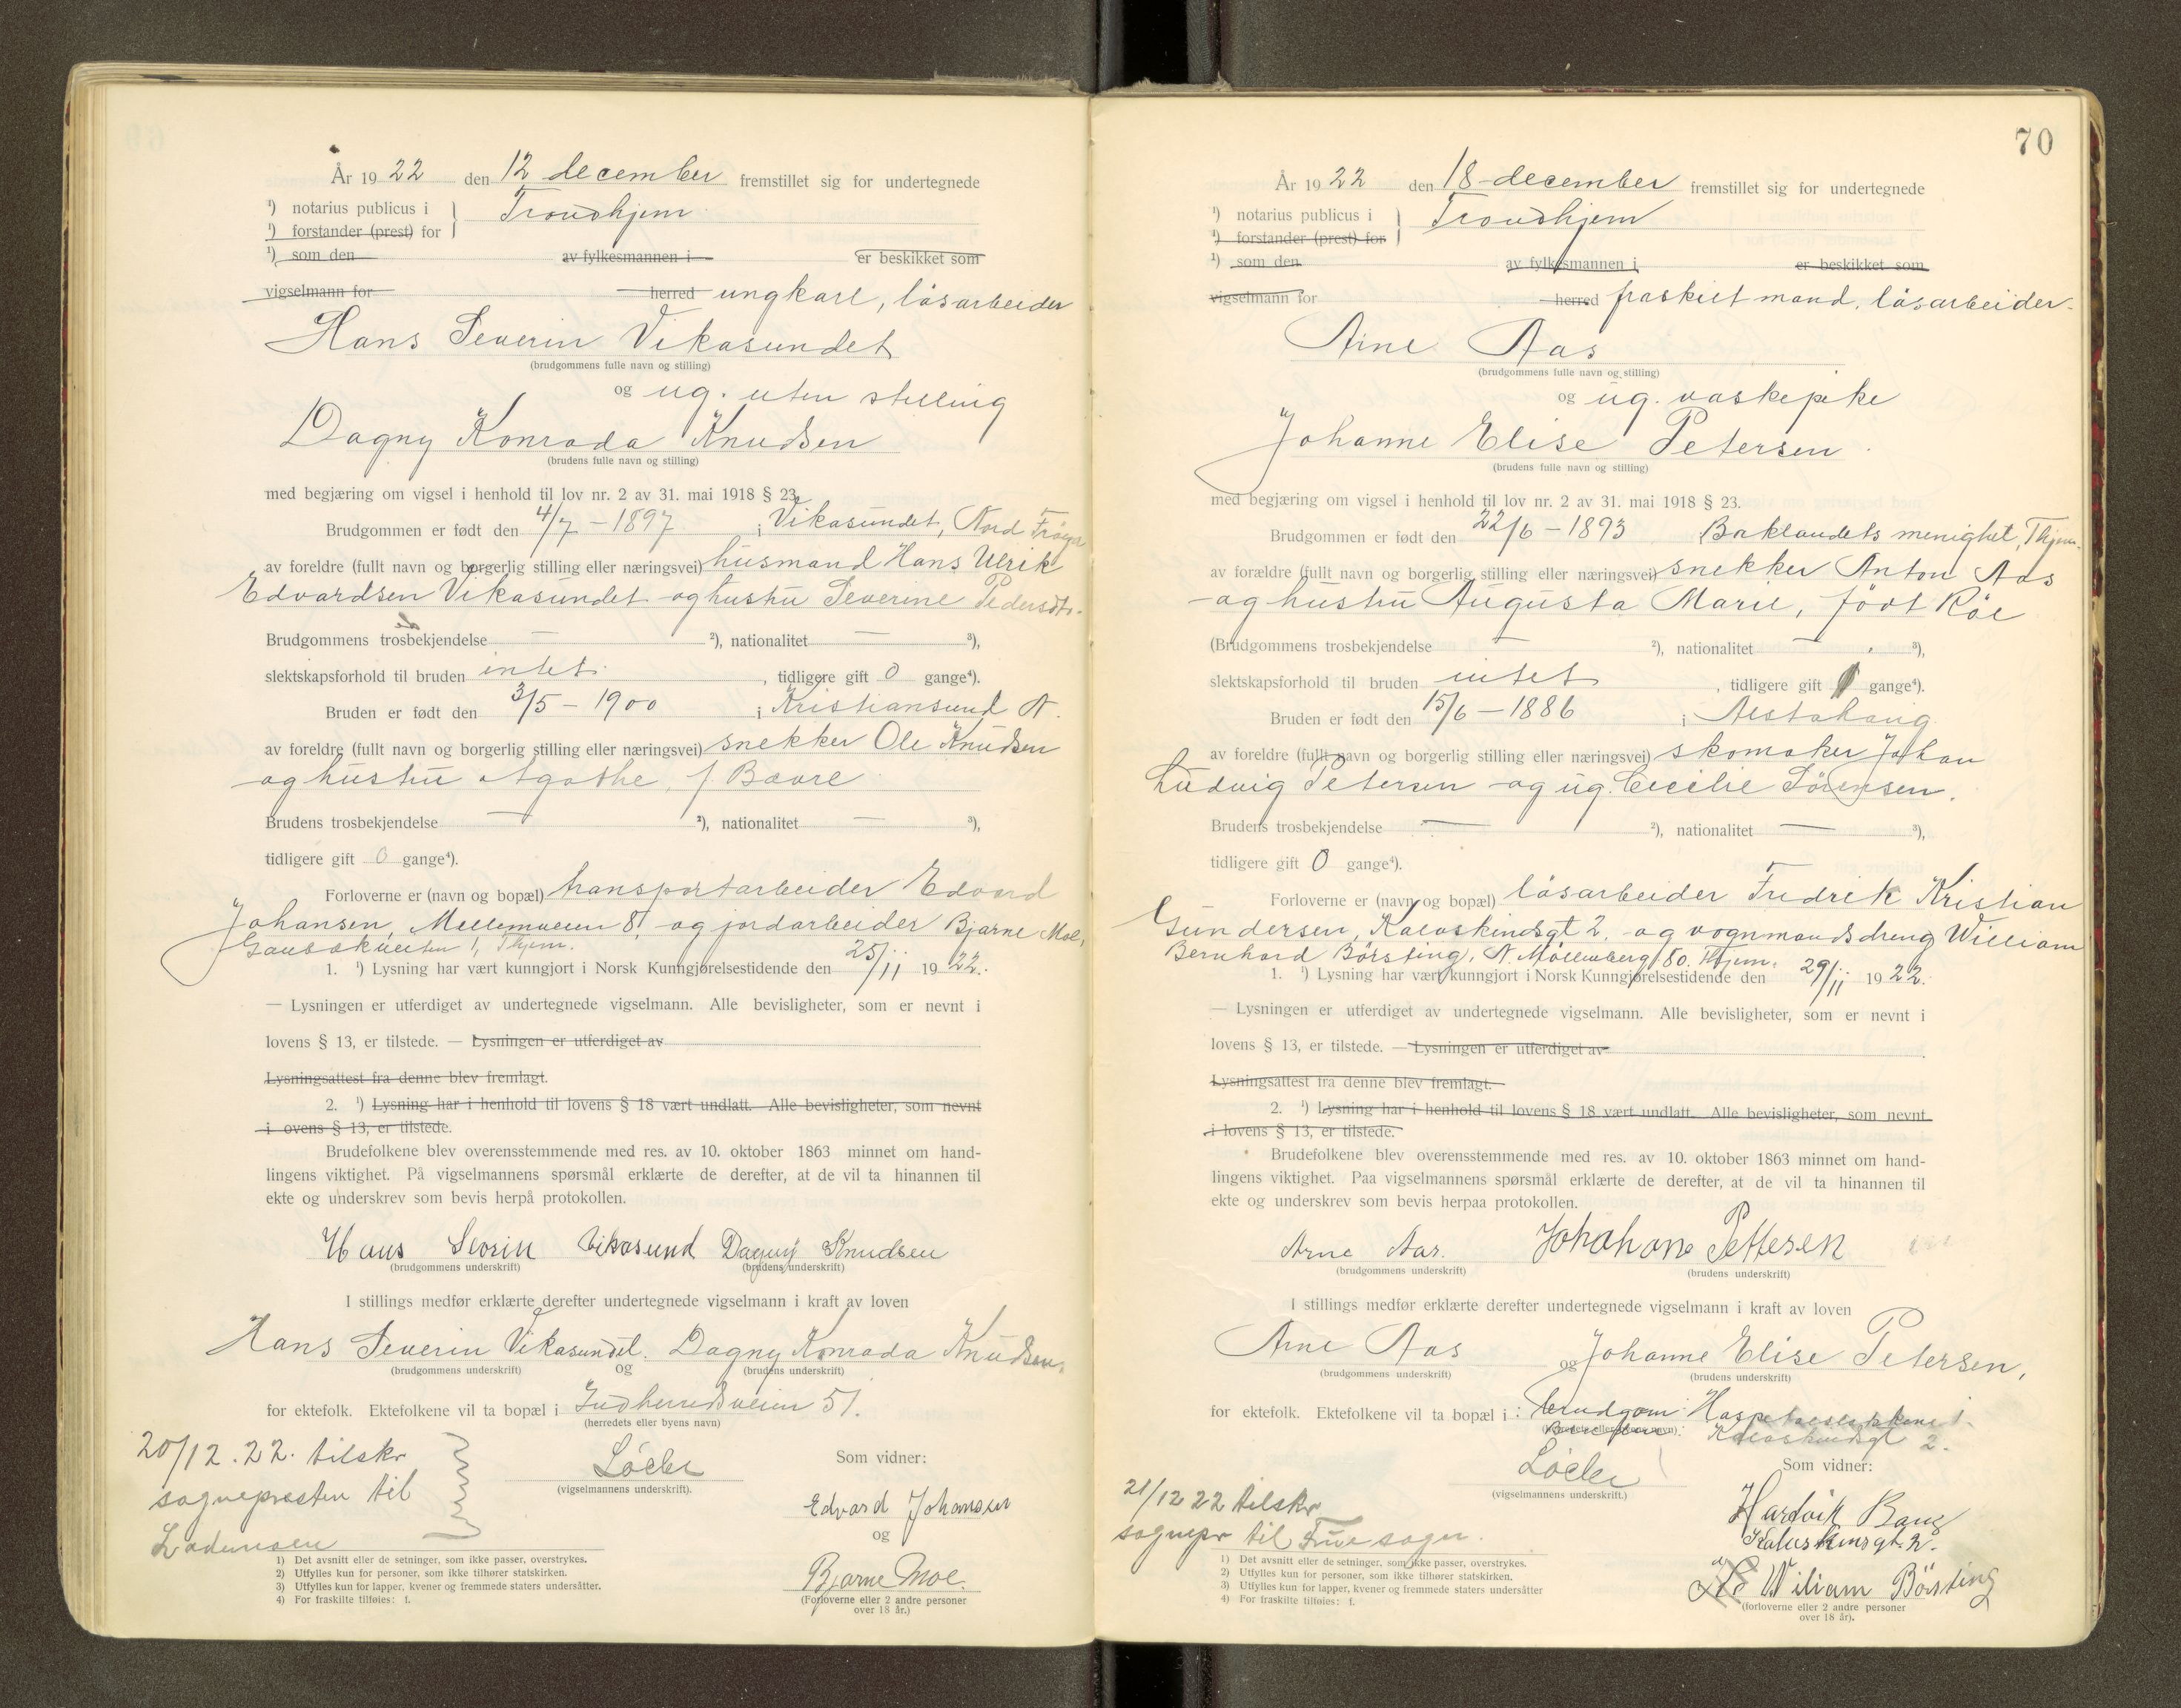 År 19 22 den 12 december fremstillet sig for undertegnede
¹) notarius publicus i } Trondhjem
¹) forstander (prest) for
¹) som den av fylkesmannen i er beskikket som
vigselmann for herred ungkarl, løsarbeider
Hans Severin Vikasundet
(brudgommens fulle navn og stilling)
og ug. uten stilling
Dagny Konrada Knudsen
(brudens fulle navn og stilling)
med begjæring om vigsel i henhold til lov nr. 2 av 31. mai 1918 § 23.
Brudgommen er født den 4/7 - 1897 i Vikasundet, Nord Frøya
av foreldre (fullt navn og borgerlig stilling eller næringsvei) husmand Hans Ulrik
Edvardsen Vikasundet og hustru Severine Pedersdtr.
Brudgommens trosbekjendelse — ²), nationalitet — ³),
slektskapsforhold til bruden intet. , tidligere gift 0 gange⁴).
Bruden er født den 3/5 - 1900 i Kristiansund N.
av foreldre (fullt navn og borgerlig stilling eller næringsvei) snekker Ole Knudsen
og hustru Agathe, f. Baare
Brudens trosbekjendelse — ²), nationalitet — ³),
tidligere gift 0 gange⁴).
Forloverne er (navn og bopæl) transportarbeider Edvard
Johansen, Mellemveien 8, og jordarbeider Bjarne Moe,
Gaubækveiten 1, Thjem.
1. ¹) Lysning har vært kunngjort i Norsk Kunngjørelsestidende den 25/11 19 22.
— Lysningen er utferdiget av undertegnede vigselmann. Alle bevisligheter, som er nevnt i
lovens § 13, er tilstede. — Lysningen er utferdiget av
Lysningsattest fra denne blev fremlagt.
2. ¹) Lysning har i henhold til lovens § 18 vært undlatt. Alle bevisligheter, som nevnt
i ovens § 13, er tilstede.
Brudefolkene blev overensstemmende med res. av 10. oktober 1863 minnet om hand-
lingens viktighet. På vigselmannens spørsmål erklærte de derefter, at de vil ta hinannen til
ekte og underskrev som bevis herpå protokollen.
Hans Sevrin Vikasund Dagny Knudsen
(brudgommens underskrift) (brudens underskrift)
I stillings medfør erklærte derefter undertegnede vigselmann i kraft av loven
Hans Severin Vikasundet. Dagny Konrada Knudsen,
(brudgommens underskrift) og (brudens underskrift)
for ektefolk. Ektefolkene vil ta bopæl i Indherredsveien 51.
(herredets eller byens navn)
20/12.22. tilskr.
sognepresten til
Lademoen
Löcke
(vigselmannens underskrift).
Som vidner:
Edvard Johansen
og
Bjarne Moe.
(Forloverne eller 2 andre personer
over 18 år.)
1) Det avsnitt eller de setninger, som ikke passer, overstrykes.
2) Utfylles kun for personer, som ikke tilhører statskirken.
3) Utfylles kun for lapper, kvener og fremmede staters undersåtter.
4) For fraskilte tilføies: f.
70
År 19 22 den 18 december fremstillet sig for undertegnede
¹) notarius publicus i } Trondhjem
¹) forstander (prest) for
¹) som den av fylkesmannen i er beskikket som
vigselmann for herred fraskilt mand, løsarbeider
Arne Aas
(brudgommens fulle navn og stilling)
og ug. vaskepike
Johanne Elise Petersen
(brudens fulle navn og stilling)
med begjæring om vigsel i henhold til lov nr. 2 av 31. mai 1918 § 23.
Brudgommen er født den 22/6 - 1893 Baklandets menighet, Thjem.
av forældre (fullt navn og borgerlig stilling eller næringsvei) snekker Anton Aas
og hustru Augusta Marie, født Røe
(Brudgommens trosbekjendelse — ²), nationalitet — ³),
slektskapsforhold til bruden intet , tidligere gift 1 gange⁴).
Bruden er født den 15/6 - 1886 i Alstahaug
av foreldre (fullt navn og borgerlig stilling eller næringsvei) skomaker Johan
Ludvig Petersen og ug. Cecilie Sørensen.
Brudens trosbekjendelse — ²), nationalitet — ³),
tidligere gift 0 gange⁴).
Forloverne er (navn og bopæl) løsarbeider Fredrik Kristian
Gundersen, Kalvskindsgt 2, og vognmandsdreng William
Bernhard Börsting, N. Møllenberg 80. Thjem.
1. ¹) Lysning har vært kunngjort i Norsk Kunngjørelsestidende den 29/11 19 22.
— Lysningen er utferdiget av undertegnede vigselmann. Alle bevisligheter, som er nevnt i
lovens § 13, er tilstede. — Lysningen er utferdiget av
Lysningsattest fra denne blev fremlagt.
2. ¹) Lysning har i henhold til lovens § 18 vært undlatt. Alle bevisligheter, som nevnt
i lovens § 13, er tilstede.
Brudefolkene blev overensstemmende med res. av 10. oktober 1863 minnet om hand-
lingens viktighet. Paa vigselmannens spørsmål erklærte de derefter, at de vil ta hinannen til
ekte og underskrev som bevis herpaa protokollen.
Arne Aas. Johahane Pettesen
(brudgommens underskrift) (brudens underskrift)
I stillings medfør erklærte derefter undertegnede vigselmann i kraft av loven
Arne Aas og Johanne Elise Petersen,
(brudgommens underskrift) (brudens underskrift)
for ektefolk. Ektefolkene vil ta bopæl i : brudgom:
Kalvskindsgt 2.
Löcke
(vigselmannens underskrift.)
21/12 22 tilskr.
sognepr til Frue sogn.
Som vidner:
Hardvik Bang
Kalvskinsgt. 2.
og Wiliam Börsting
(forloverne eller 2 andre personer
over 18 år).
1) Det avsnitt eller de setninger, som ikke passer, overstrykes.
2) Utfylles kun for personer, som ikke tilhører statskirken.
3) Utfylles kun for lapper, kvener og fremmede staters undersåtter
4) For fraskilte tilføies: f.